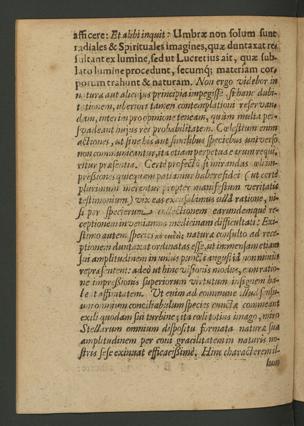 afficere: Et alibi inquit: Umbræ non solum sunt
radiales & Spirituales imagines, quæ duntaxat re-
sultant ex lumine, sed ut Lucretius ait, quæ sub-
lato lumine procedunt, secumq; materiam cor-
poream trahunt & naturam. Non ergo videbor in
natura aut alterius principia impegisse, si hanc dubi-
tationem, uberiori tamen contemplationi reservan-
dam, interim opinione teneam, quam multa per-
suadeant hujus rei probabilitatem. Cælestium enim
actiones, ut sine his aut similibus speciebus universo
non communicentur, ita etiam perpetuæ erunt
ritur præsentia. Certè profectò si mirandas
pressiones quequam patiamur habere fidei (ut certè
plurimum merentur propter manifestum veritatis
testimonium) vix eas excusabimus ulla ratione, ni-
si per specierum collectionem earundemque re-
ceptionem inveniamus medicinam difficultati: Exi-
stimo autem species natura consulto ad rece-
ptionem duntaxat ordinatas esse, ut immensam etiam
sui amplitudinem in unius puncti angustia non minus
repræsentent: adeò ut hinc visionis modus, cum ratio-
ne impressionis superiorum virtutum insignem ha-
beat affinitatem. Ut enim ad commune illud sensu-
um omnium conciliabulum species cunctæ commeant
exili quodam sui turbine; ita cælitotius imago, miro
Stellarum omnium dispositu formata natura sua
amplitudinem per coni gracilitatem in naturis no-
stris sese exinuat efficacissimè. Hinc characterem il-
lum